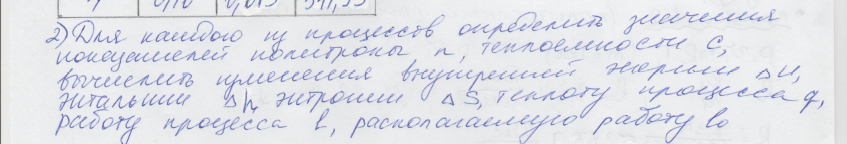 2) Для каждого из процессов определить значения
показателей политропы n, теплоемкости c,
вычислить изменения внутренней энергии Δu,
энтальпии Δh, энтропии ΔS, теплоту процесса q,
работу процесса l, располагаемую работу l₀